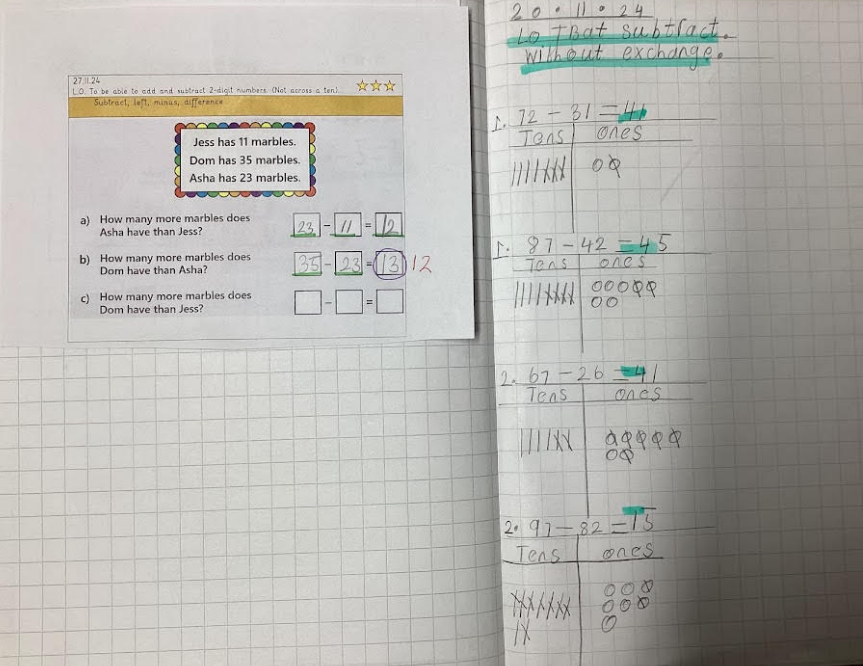 27.11.24
L.O. To be able to add and subtract 2-digit numbers (Not across a ten)
Subtract, left, minus, difference
Jess has 11 marbles.
Dom has 35 marbles.
Asha has 23 marbles.
a) How many more marbles does
Asha have than Jess?
23 - 11 = 12
b) How many more marbles does
Dom have than Asha?
35 - 23 = 13 12
c) How many more marbles does
Dom have than Jess?
- =
20.11.24
LO TBat subtract
without exchange.
1. 72 - 31 = 41
Tens ones
1. 87 - 42 = 45
Tens ones
2. 67 - 26 = 41
Tens ones
2. 97 - 82 = 15
Tens ones